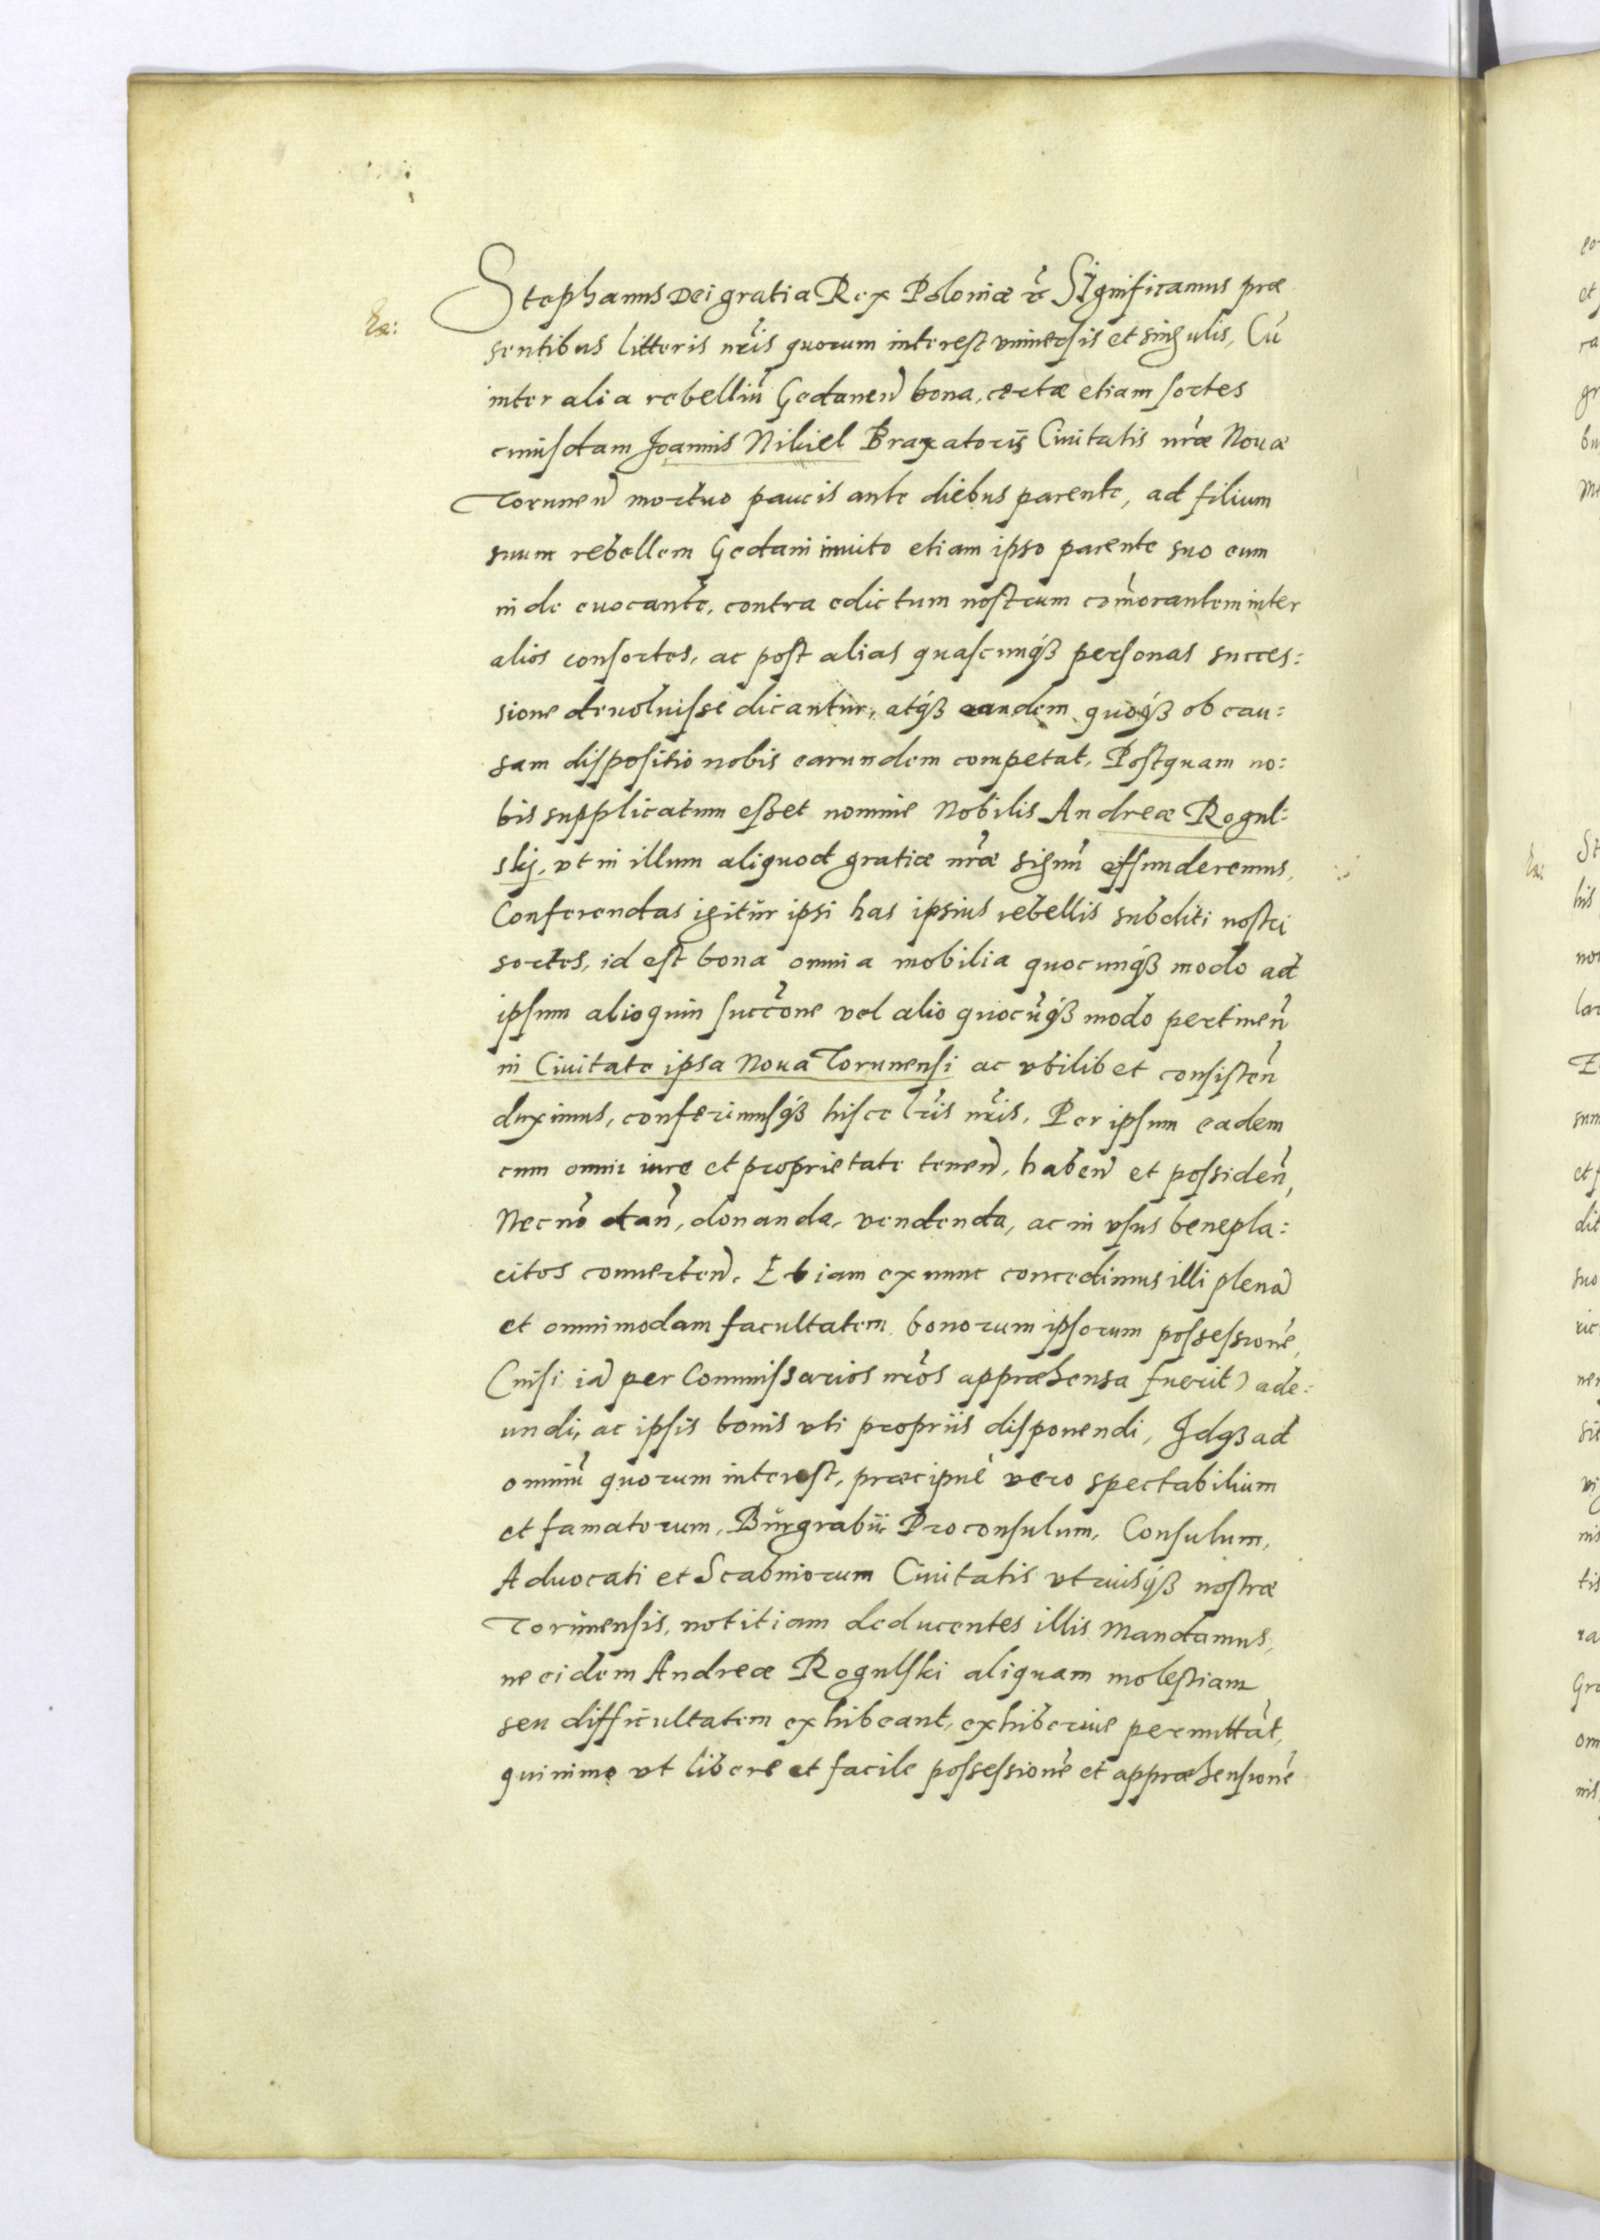 Stephanus Dei gratia Rex Poloniæ &c̃ Significamus præ
sentibus litteris nr̃is quorum interest vniuersis et singulis, Cũ
inter alia rebelliũ Gedanen̄ bona, certæ etiam sortes
cuiusdam Joannis Nikiel Braxatoris Ciuitatis nr̃æ Nouæ
Torunen̄ mortuo paucis ante diebus parente, ad filium
suum rebellem Gedani inuito etiam ipso parente suo eum
inde euocante, contra edictum nostrum com̃orantem inter
alios consortes, ac post alias quascunqȝ personas succes:
sione deuoluisse dicantur, atqȝ eandem quoqȝ ob cau:
sam dispositio nobis earundem competat. Postquam no:
bis supplicatum esset nomine Nobilis Andreæ Rogul:
skj, vt in illum aliquod gratiæ nr̃æ signũ effunderemus,
Conferendas igitur ipsi has ipsius rebellis subditi nostri
sortes, id est bona omnia mobilia quocunqȝ modo ad
ipsum alioquin succ̃one vel alio quocũqȝ modo pertinen̄
in Ciuitate ipsa Noua Torunensi ac vbilibet consisten̄
duximus, conferimusqȝ hisce lr̃is nr̃is. Per ipsum eadem
cum omni iure et proprietate tenen̄, haben̄ et possiden̄,
Necnõ dan̄, donanda, vendenda, ac in vsus benepla:
citos conuerten̄. Etiam ex nunc concedimus illi plenã
et omnimodam facultatem bonorum ipsorum possessionẽ,
(nisi iã per Commissarios nr̃os appræhensa fuerit) ade:
undi, ac ipsis bonis vti propriis disponendi, Jdqȝ ad
omniũ quorum interest, præcipuè vero spectabilium
et famatorum, Burgrabii Proconsulum, Consulum,
Aduocati et Scabinorum Ciuitatis vtriusqȝ nostræ
Torunensis, notitiam deducentes illis Mandamus,
ne eidem Andreæ Rogulski aliquam molestiam
seu difficultatem exhibeant, exhiberiue permittãt,
quinimo vt libere et facile possessionẽ et appræhensionẽ